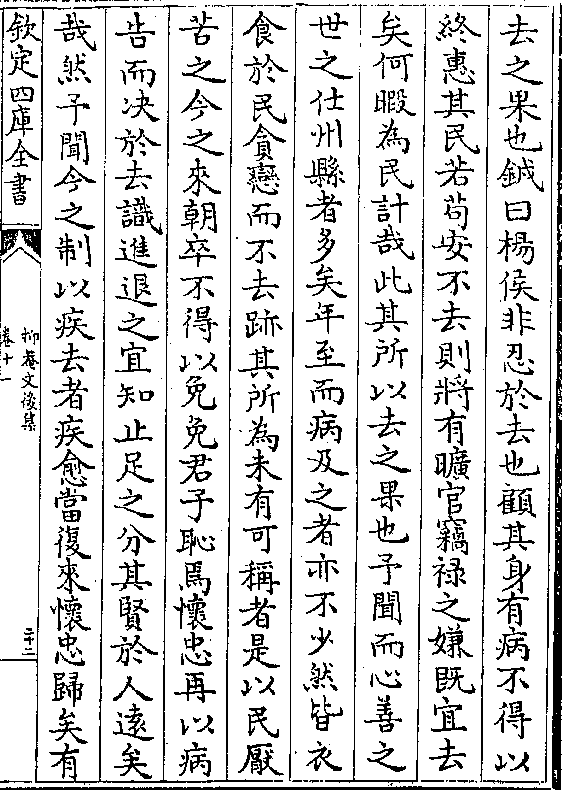 去之果也鉞曰楊侯非忍於去也顧其身有病不得以
終惠其民若苟安不去則將有曠官竊禄之嫌既宜去
矣何暇為民計哉此其所以去之果也予聞而心善之
世之仕州縣者多矣年至而病及之者亦不少然皆衣
食於民貪戀而不去跡其所為未有可稱者是以民厭
苦之今之來朝卒不得以免免君子恥焉懷忠再以病
告而决於去識進退之宜知止足之分其賢於人遠矣
哉然予聞今之制以疾去者疾愈當復來懷忠歸矣有
欽定四庫全書
抑菴文後集
卷十一
二十二